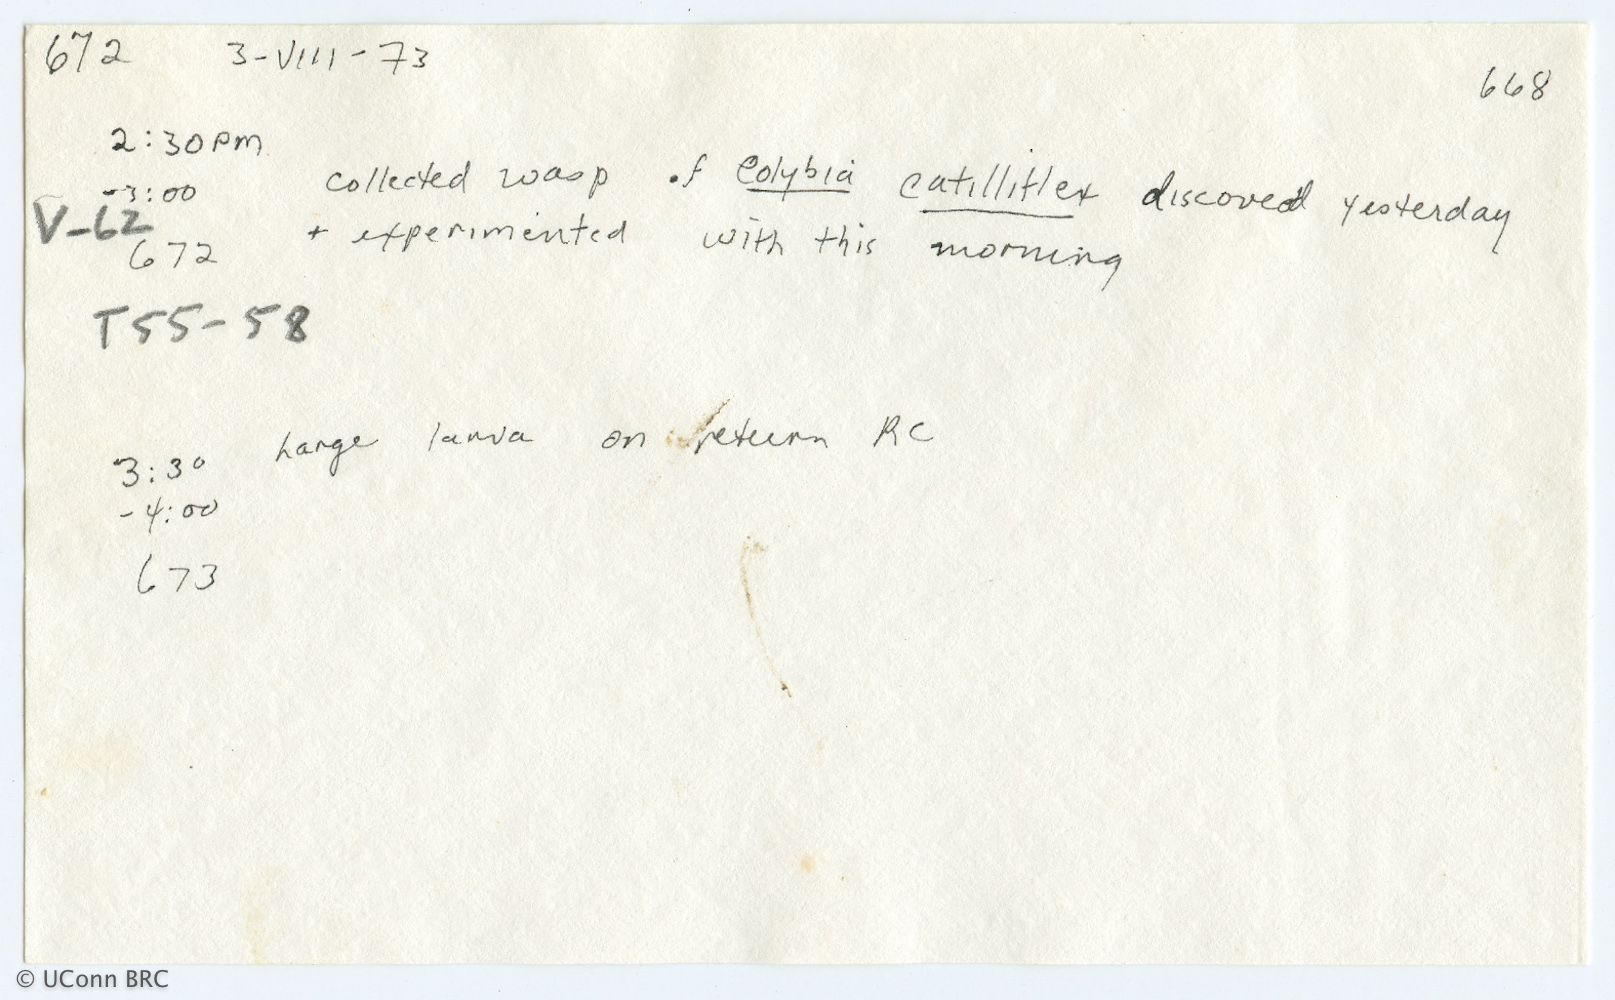 672 3-VIII-73
668
2:30 PM
-3:00 collected wasp of Polybia catillifex discoved yesterday
V-62
672 + experimented with this morning
T55-58
3:30 Large larva on return RC
-4:00
673
© UConn BRC